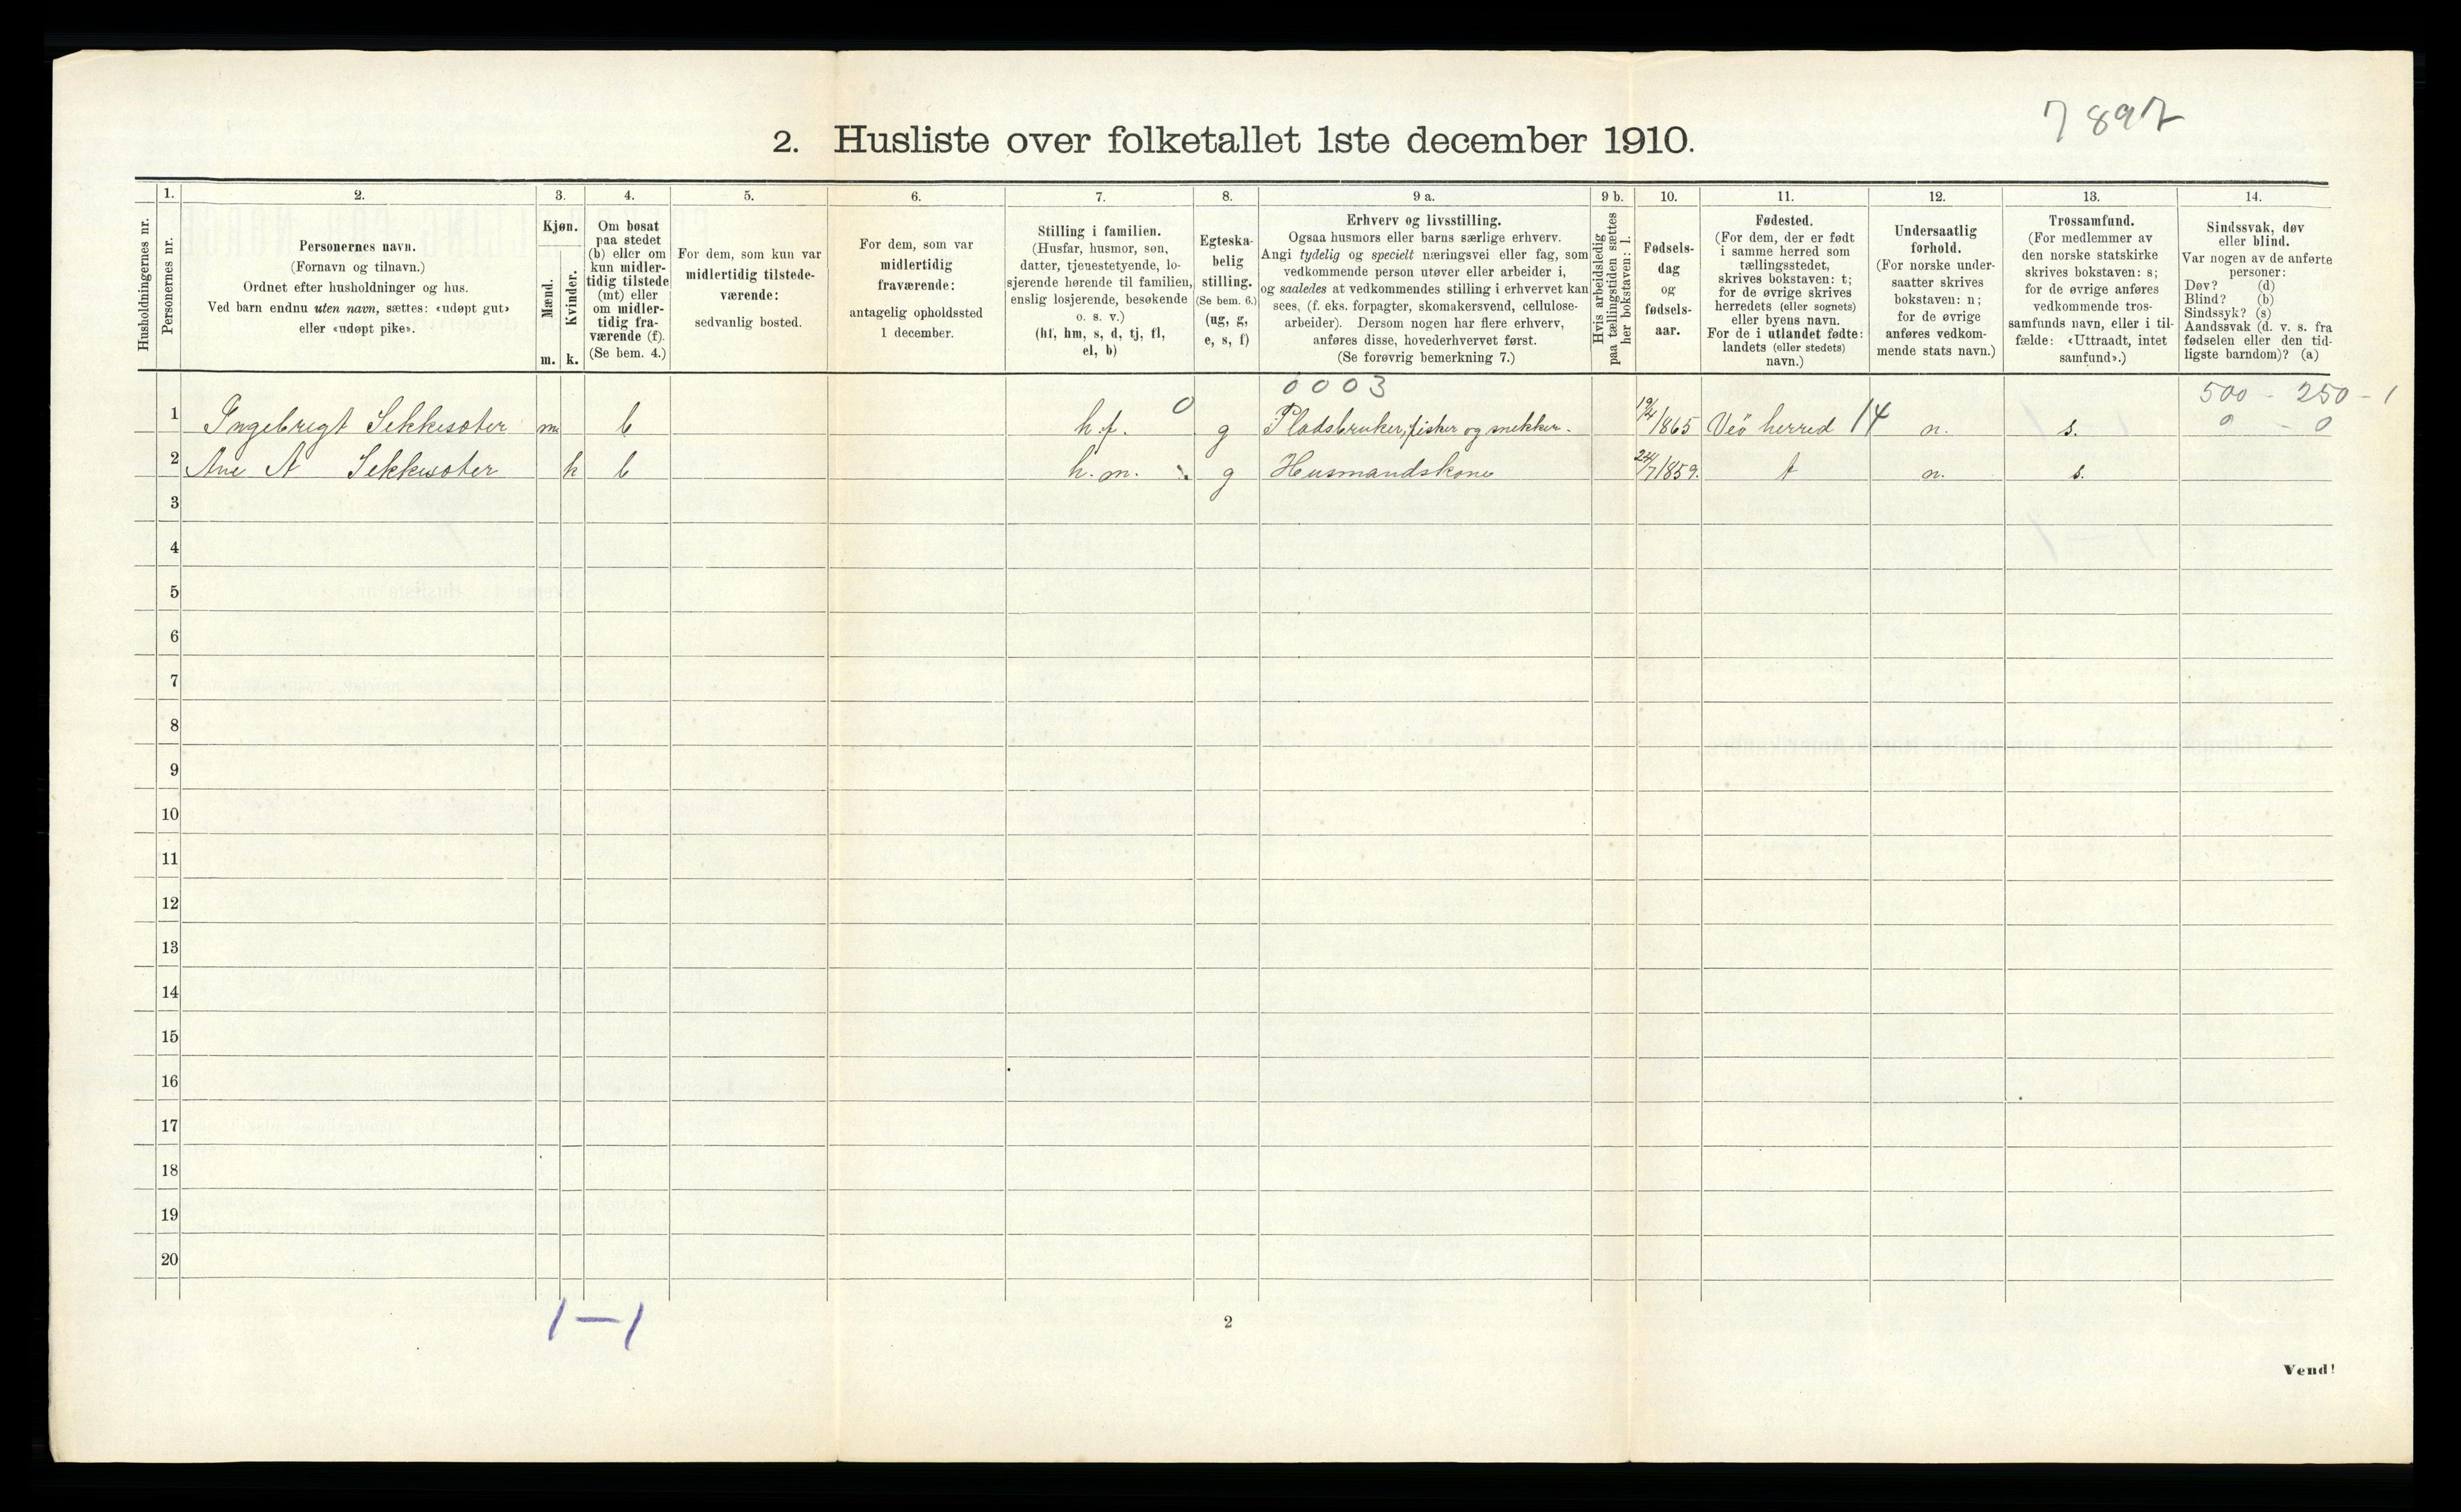 7897
2. Husliste over folketallet 1ste december 1910.
Husholdningernes nr.
1.
Personernes nr.
2.
Personernes navn.
(Fornavn og tilnavn.)
Ordnet efter husholdninger og hus.
Ved barn endnu uten navn, sættes: «udøpt gut»
eller «udøpt pike».
3.
Kjøn.
Mænd.
Kvinder.
m.
k.
4.
Om bosat
paa stedet
(b) eller om
kun midler-
tidig tilstede
(mt) eller
om midler-
tidig fra-
værende (f).
(Se bem. 4.)
5.
For dem, som kun var
midlertidig tilstede-
værende:
sedvanlig bosted.
6.
For dem, som var
midlertidig
fraværende:
antagelig opholdssted
1 december.
7.
Stilling i familien.
(Husfar, husmor, søn,
datter, tjenestetyende, lo-
sjerende hørende til familien,
enslig losjerende, besøkende
o. s. v.)
(hf, hm, s, d, tj, fl,
el, b)
8.
Egteska-
belig
stilling.
(Se bem. 6.)
(ug, g,
e, s, f)
9 a.
Erhverv og livsstilling.
Ogsaa husmors eller barns særlige erhverv.
Angi tydelig og specielt næringsvei eller fag, som
vedkommende person utøver eller arbeider i,
og saaledes at vedkommendes stilling i erhvervet kan
sees, (f. eks. forpagter, skomakersvend, cellulose-
arbeider). Dersom nogen har flere erhverv,
anføres disse, hovederhvervet først.
(Se forøvrig bemerkning 7.)
9 b.
Hvis arbeidsledig
paa tællingstiden sættes
her bokstaven: l.
10.
Fødsels-
dag
og
fødsels-
aar.
11.
Fødested.
(For dem, der er født
i samme herred som
tællingsstedet,
skrives bokstaven: t;
for de øvrige skrives
herredets (eller sognets)
eller byens navn.
For de i utlandet fødte:
landets (eller stedets)
navn.)
12.
Undersaatlig
forhold.
(For norske under-
saatter skrives
bokstaven: n;
for de øvrige
anføres vedkom-
mende stats navn.)
13.
Trossamfund.
(For medlemmer av
den norske statskirke
skrives bokstaven: s;
for de øvrige anføres
vedkommende tros-
samfunds navn, eller i til-
fælde: «Uttraadt, intet
samfund».)
14.
Sindssvak, døv
eller blind.
Var nogen av de anførte
personer:
Døv? (d)
Blind? (b)
Sindssyk? (s)
Aandssvak (d. v. s. fra
fødselen eller den tid-
ligste barndom)? (a)
0003
500 - 250 - 1
1 Ingebrigt Sekkesæter m. b h.f. 0 g Pladsbruker, fisker og snekker. 19/4 1865 Veö herred 14 n. s. 0 - 0
2 Ane A Sekkesæter k b h.m. g Husmandskone 24/7 1859. t n. s.
3
4
5
6
7
8
9
10
11
12
13
14
15
16
17
18
19
20
1-1
2
Vend!